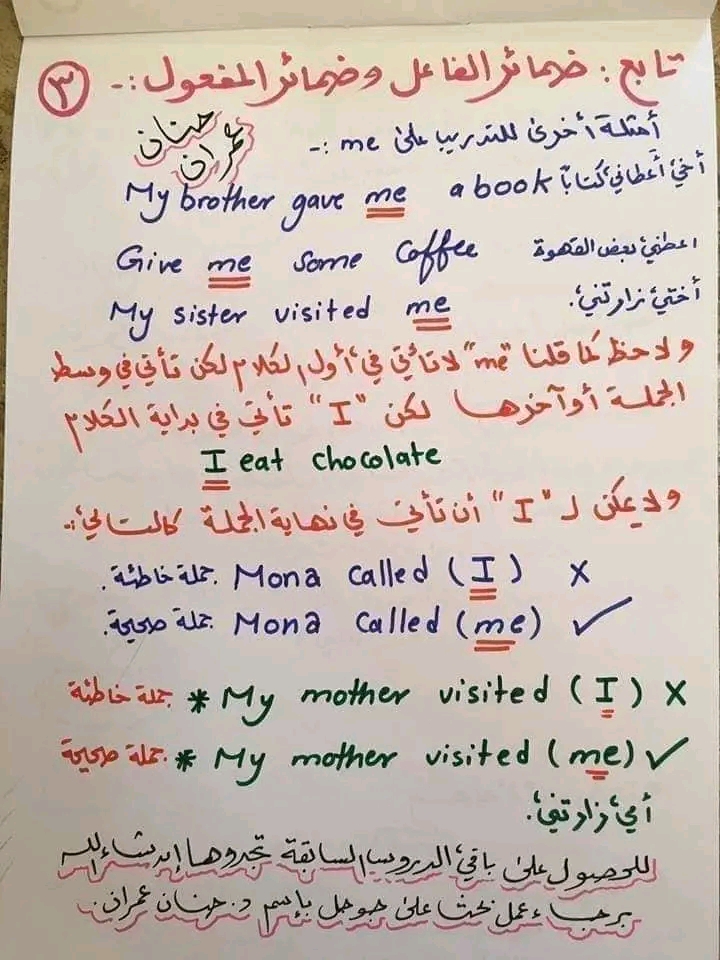 تابع: ضمائر الفاعل وضمائر المفعول :- ٣
حنان
عمران
أمثلة أخرى للتدريب على me :-
My brother gave me a book أخي أعطاني كتاباً
Give me some coffee اعطني بعض القهوة
My sister visited me أختي زارتني.
ولاحظ كما قلنا "me" لا تأتي في أول الكلام لكن تأتي في وسط
الجملة أو آخرها لكن "I" تأتي في بداية الكلام
I eat chocolate
ولا يمكن لـ "I" أن تأتي في نهاية الجملة كالتالي :-
Mona called (I) X جملة خاطئة.
Mona called (me) ✓ جملة صحيحة.
* My mother visited (I) X جملة خاطئة
* My mother visited (me) ✓ جملة صحيحة
أمي زارتني.
للحصول على باقي الدروس السابقة تجدوها إن شاء الله
برجاء عمل بحث على جوجل بإسم د. حنان عمران.